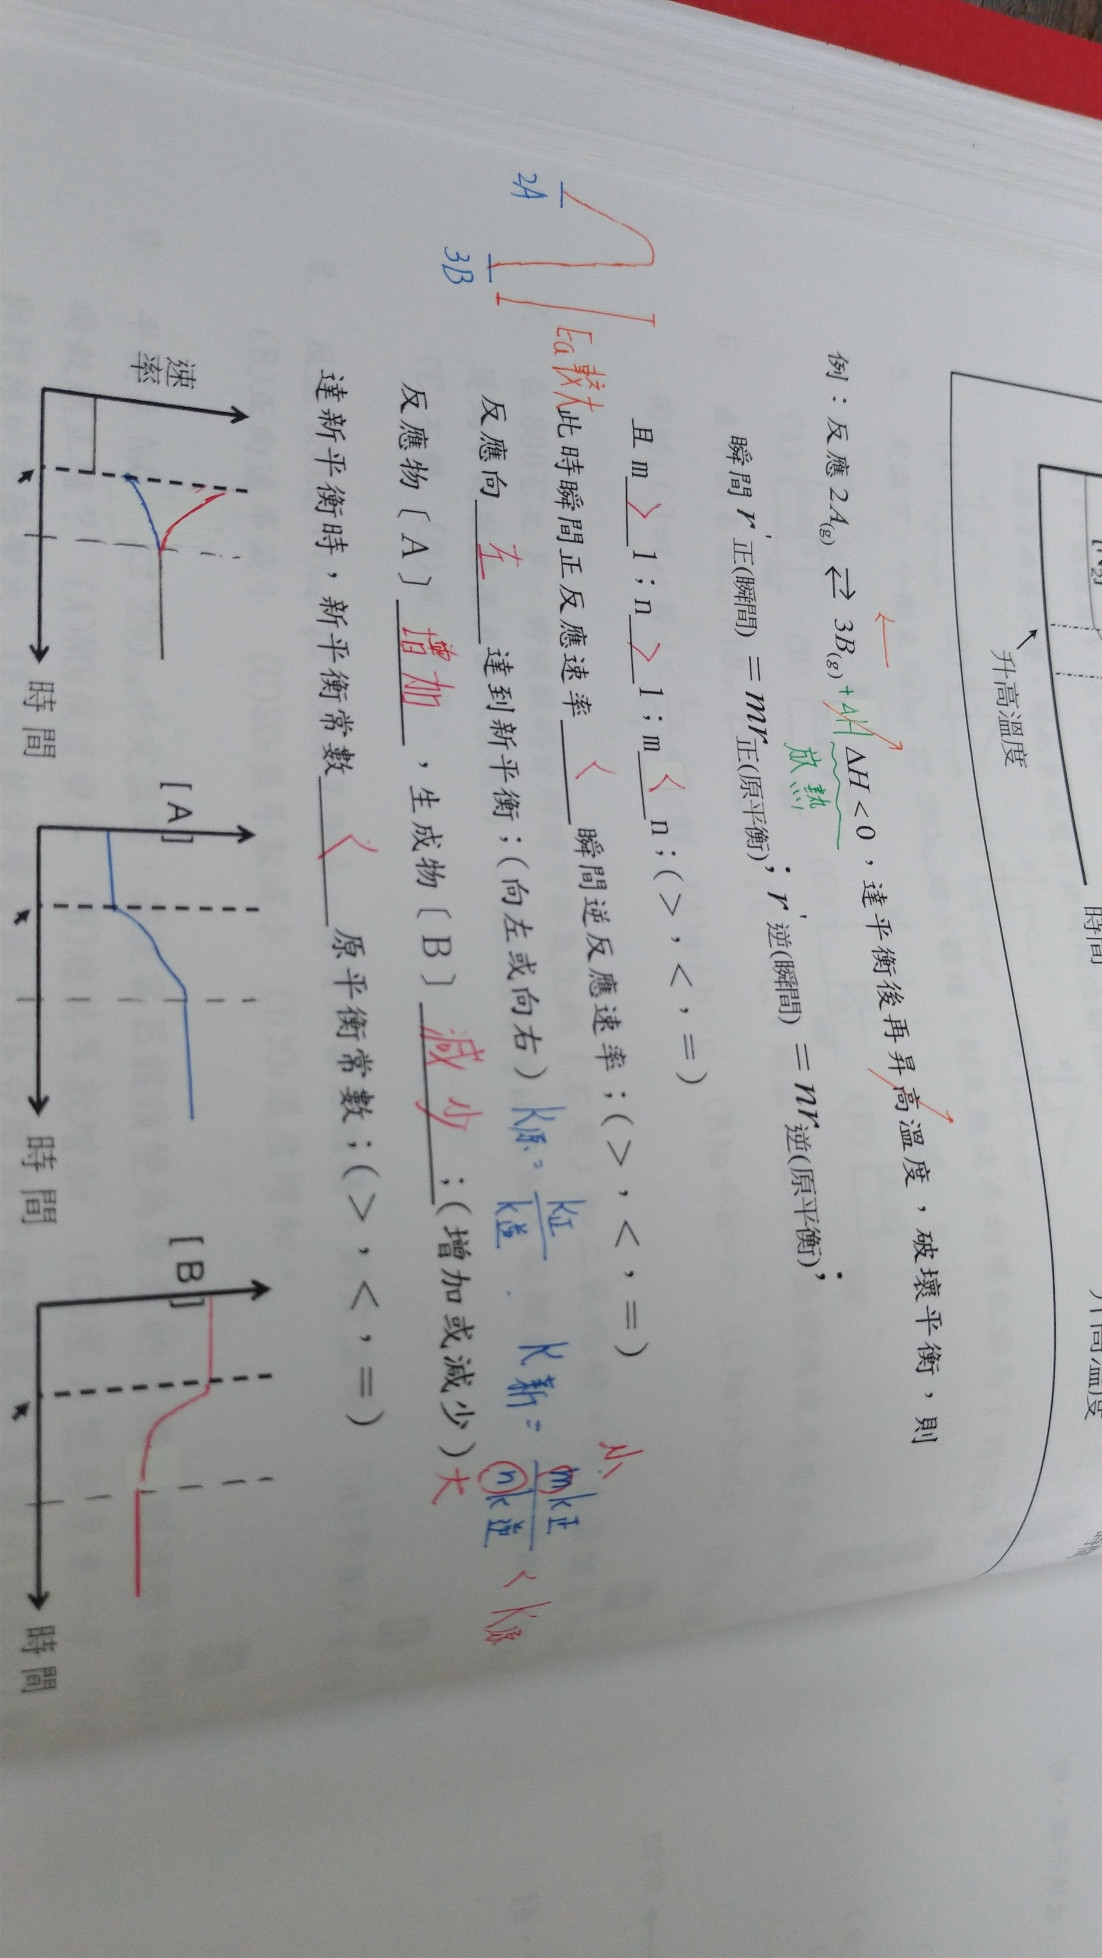 [N₂]
升高溫度
時間
升高溫度
例：反應 2A(g) ⇄ 3B(g) +ΔH ΔH < 0，達平衡後再昇高溫度，破壞平衡，則
放熱
瞬間 r'正(瞬間) = mr正(原平衡)；r'逆(瞬間) = nr逆(原平衡)；
且 m > 1；n > 1；m < n；(>，<，=)
Ea較大 此時瞬間正反應速率 < 瞬間逆反應速率；(>，<，=)
2A
3B
反應向 左 達到新平衡；(向左或向右) K原 = k正/k逆 K新 = mk正/nk逆 < K原
小
大
反應物〔A〕增加，生成物〔B〕減少；(增加或減少)
達新平衡時，新平衡常數 < 原平衡常數；(>，<，=)
速率
時間
[A]
時間
[B]
時間